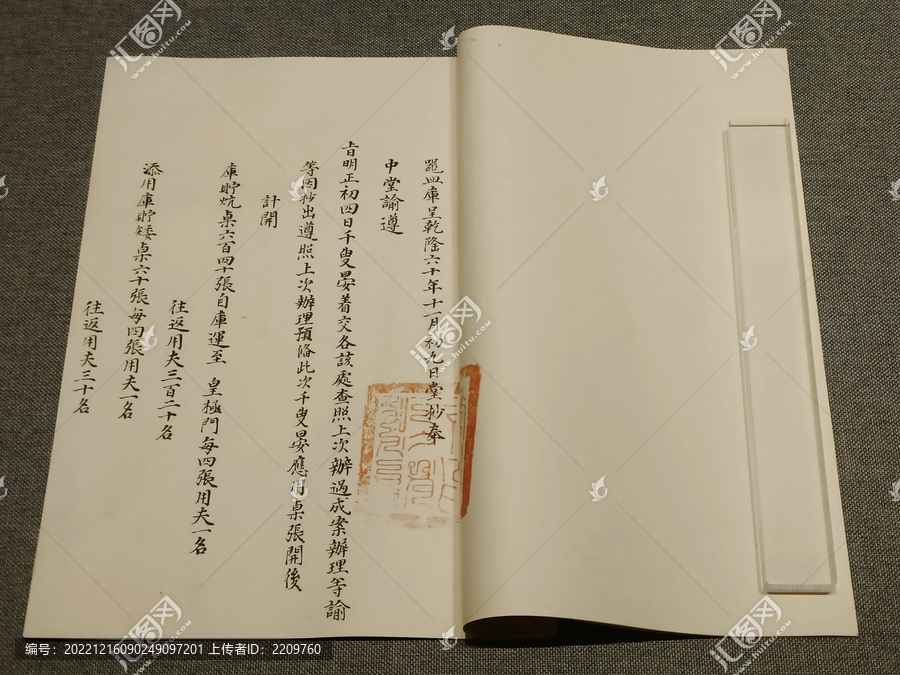 器皿庫呈乾隆六十年十一月初九日堂抄奉
中堂諭遵
旨明正初四日千叟晏着交各該處查照上次辦過成案辦理等諭
等因抄出遵照上次辦理預俻此次千叟晏應用桌張開後
計開
庫貯炕桌六百四十張自庫運至 皇極門每四張用夫一名
往返用夫三百二十名
添用庫貯矮桌六十張每四張用夫一名
往返用夫三十名
汇图网
www.huitu.com
编号：20221216090249097201 上传者ID：2209760